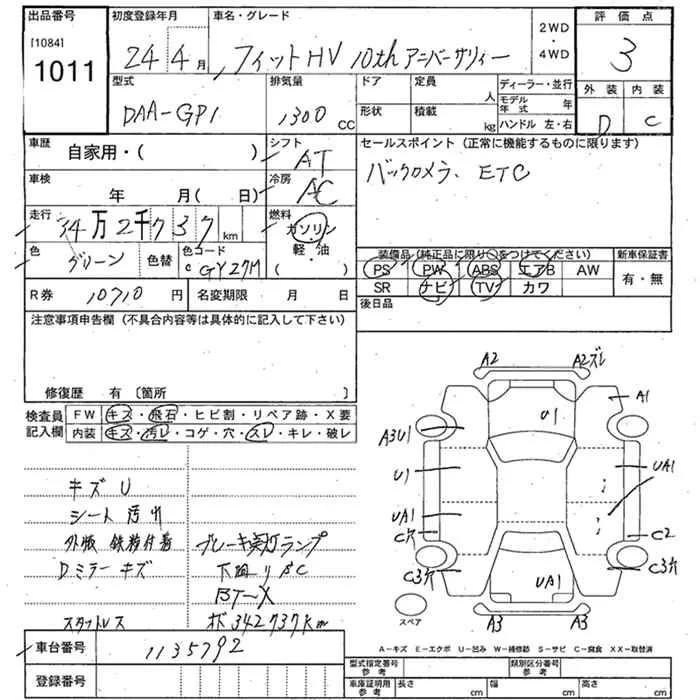 出品番号
[1084]
1011
初度登録年月
24年4月
車名・グレード
フィットHV 10thアニバーサリィー
2WD
・
4WD
評価点
3
外装 内装
D C
型式
DAA-GP1
排気量
1300 CC
ドア
形状
定員
人
積載
kg
ディーラー・並行
モデル年式 年
ハンドル 左・右
車歴
自家用・( )
シフト
AT
車検
年 月( 日)
冷房
AC
走行
34万2千737km
燃料
ガソリン
軽・油
( )
色
グリーン
色替
色コード
GY27M
R券
10710円
名変期限 月 日
セールスポイント(正常に機能するものに限ります)
バックカメラ、ETC
装備品(純正品に限り○をつけてください)
新車保証書
PS PW ABS エアB AW
SR ナビ TV カワ
有・無
後日品
注意事項申告欄(不具合内容等は具体的に記入して下さい)
修復歴 有〔箇所 〕
検査員
記入欄
FW キズ・飛石・ヒビ割・リペア跡・X要
内装 キズ・汚レ・コゲ・穴・スレ・キレ・破レ
キズ U
シート 汚れ
外板 鉄粉付着
Dミラー キズ
スタットレス
ブレーキ警灯ランプ
下廻りSC
BT-X
ホ゛342737km
A2
A2ズレ
A1
U1
A3U1
U1
UA1
UA1
C穴
C2
C3穴
C3穴
UA1
A3
A3
スペア
A-キズ E-エクボ U-凹み W-補修跡 S-サビ C-腐食 XX-取替済
車台番号
1135792
登録番号
型式指定番号
参考
類別区分番号
参考
車庫証明用
参考
長さ cm
幅 cm
高さ cm